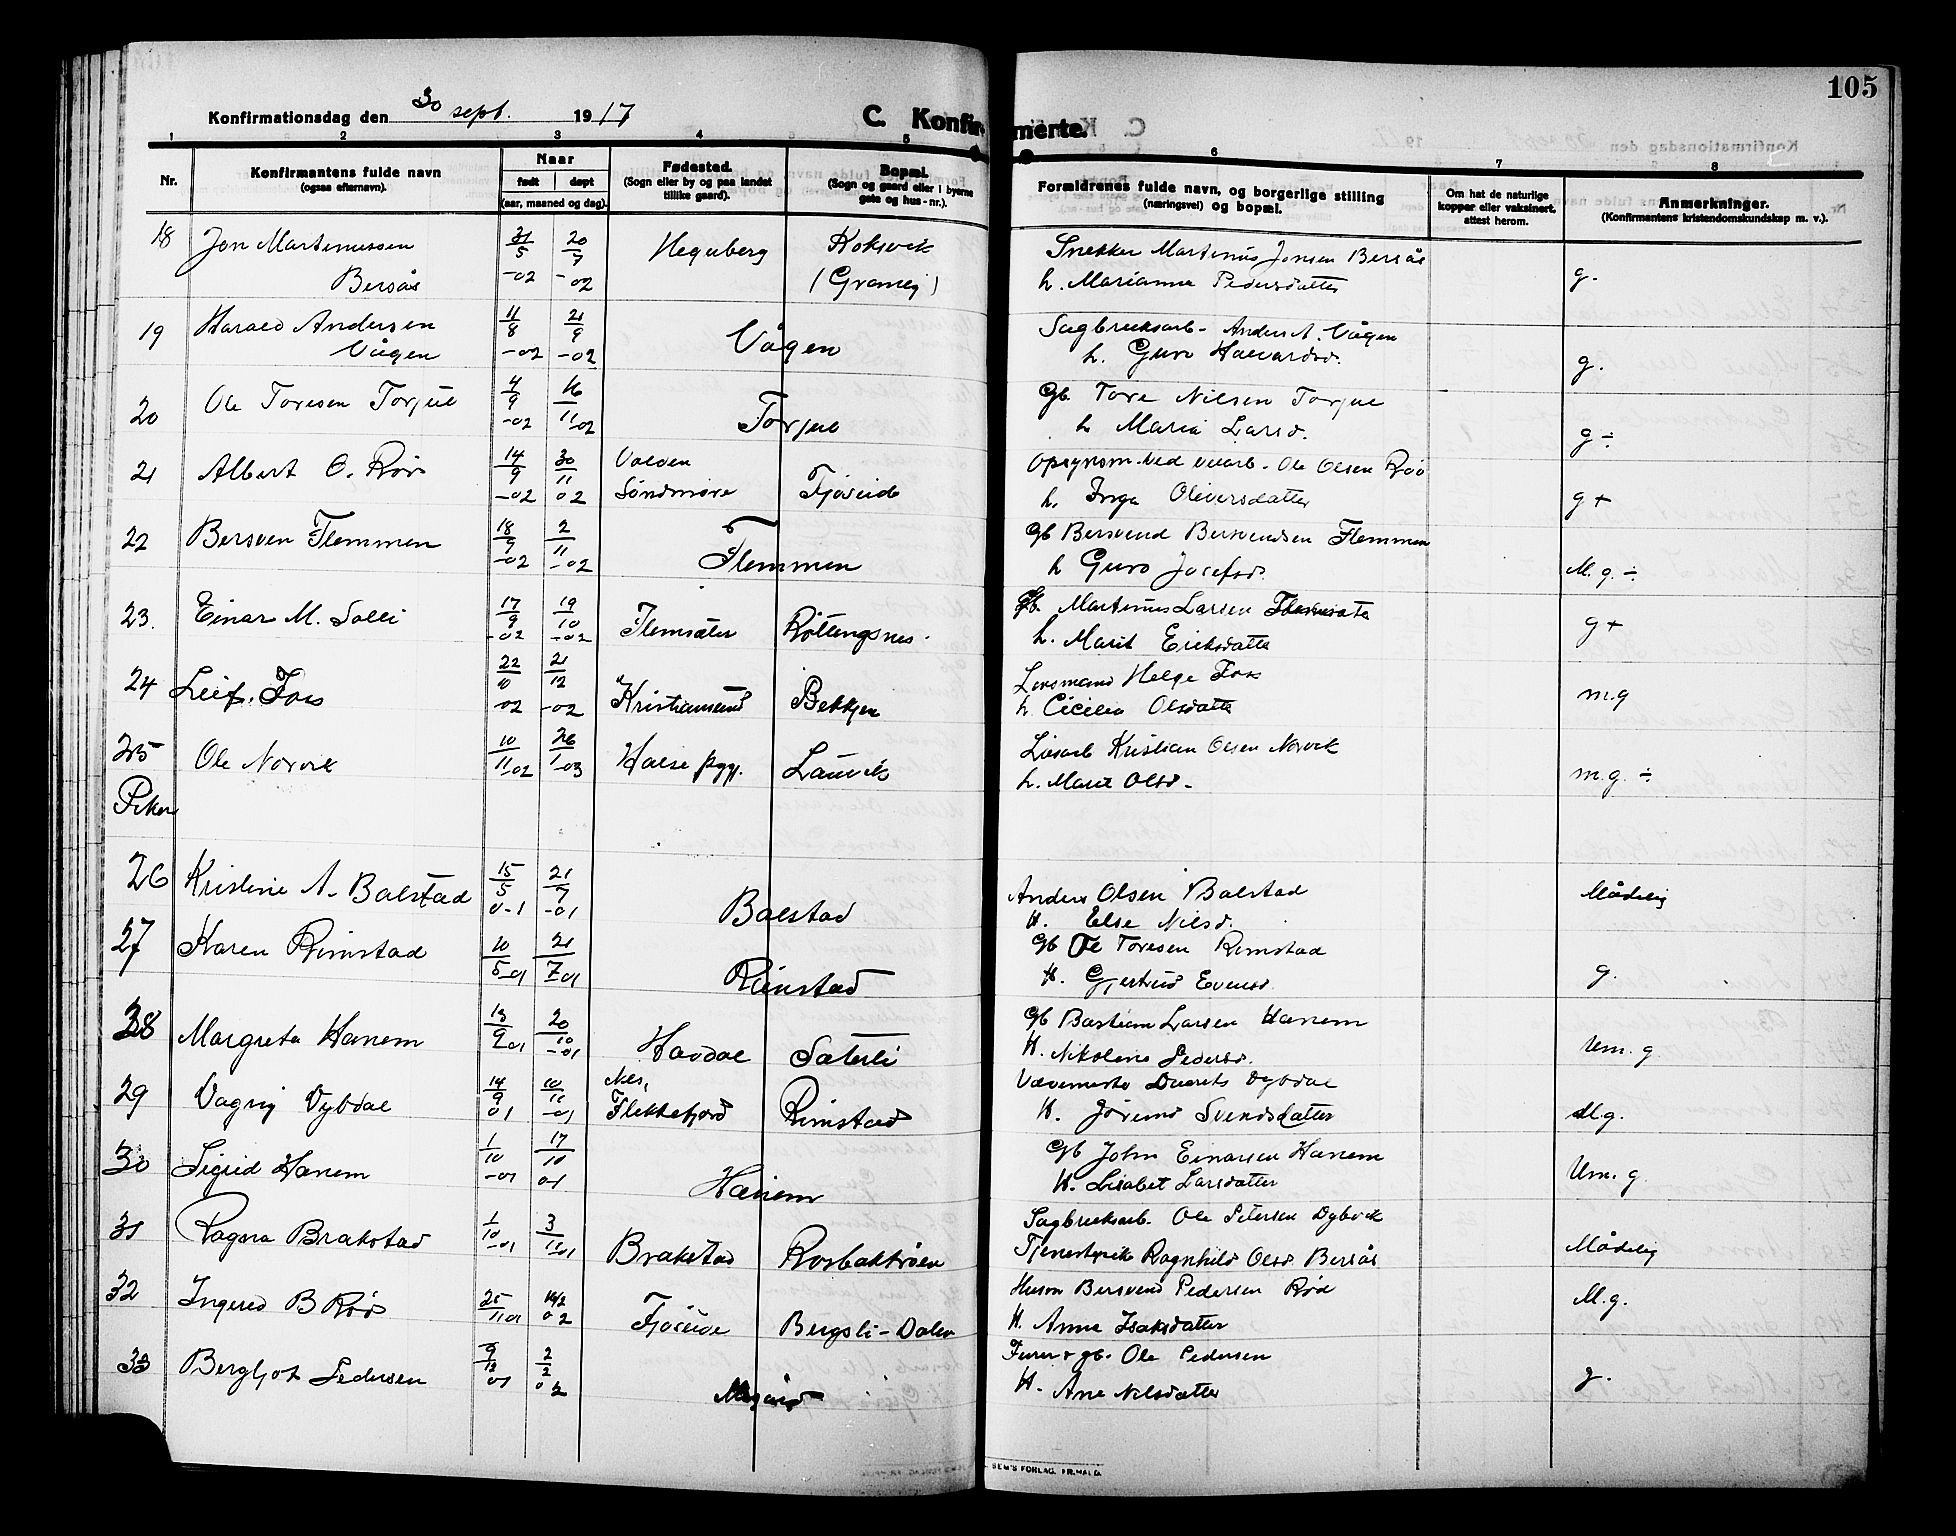 105
Konfirmationsdag den 30 sept. 1917
C. Konfirmerte.
1 2 3 4 5 6 7 8
Nr.
Konfirmantens fulde navn
(ogsaa efternavn).
Naar
født døpt
(aar, maaned og dag).
Fødested.
(Sogn eller by og paa landet
tillike gaard).
Bopæl.
(Sogn og gaard eller i byerne
gate og hus-nr.).
Forældrenes fulde navn, og borgerlige stilling
(næringsvei) og bopæl.
Om hat de naturlige
kopper eller vaksinert,
attest herom.
Anmerkninger.
(Konfirmantens kristendomskundskap m. v.).
18 Jon Martinussen 31/5 20/7 Heguberg Koksvik Snekker Martinus Jonsen Bersås
Bersås -02 -02 (Gramej) h. Marianna Pedersdatter g.
19 Harald Andersen 11/8 21/9 Vågen Sagbruksarb. Anders A. Vågen
Vågen -02 -02 h. Guro Halvardsd. g.
20 Ole Toresen Torjul 4/9 16/11 Torjul Gb. Tore Nilsen Torjul
-02 -02 h Marit Larsd. g ÷
21 Albert O. Röv 14/9 30/11 Volden Opsynsm. ved veiarb. Ole Olsen Röv
-02 02 Söndmöre Fjöseide h. Inga Oliversdatter g +
22 Bersven Flemmen 18/9 2/11 Flemmen Gb Bersvend Bersvendsen Flemmen
-02 -02 h Guro Josefsd. M.g. ÷
23. Einar M. Solli 17/9 19/10 Flemsäter Röttingsnes. Gb. Martinus Larsen Flemsäter
-02 -02 h. Marit Eriksdatter g +
24 Leif. Fors 22/10 21/12 Kristiansund Bekken Lensmand Helge Fors
02 -02 h. Cicilia Olsdatter m.g
25 Ole Norvik 10/11-02 26/1-03 Halse pgj. Lauvik Löisarb Kristian Olsen Norvik
h. Marit Olsd. m.g. ÷
Piker
26 Kristine A. Balstad 15/5 21/7 Balstad Anders Olsen Balstad Mådelig
0-1 -01 H. Else Nilsd.
27 Karen Rimstad 10/5-01 21/7-01 Rimstad Gb Ole Toresen Rimstad
H. Gjertrud Evensd. g.
28 Margreta Hanem 13/9-01 20/10-01 Havdal Säterli Gb Bastian Larsen Hanem
H. Nikoline Pedersd. Um. g.
29 Dagny Dybdal 14/9 10/11 Nes, Vævemester Duerets Dybdal
01 -01 Flekkefjord Rimstad H. Jörend Svendsdatter M.g.
30 Sigrid Hanem 1/10 17/10 Hanem Gb John Einarsen Hanem
-01 01 H. Lisabet Larsdatter Um. g.
31 Ragna Brakstad 1/10-01 3/11-01 Brakstad Rosbakkröen Sagbruksarb. Ole Petersen Dybvik
Tjenestepike Ragnhild Olsd Bersås Mådelig
32 Ingrid B Röd 25/11-01 14/2 02 Fjöseide Bergsli-Dalen Husm Bersvend Pedersen Röd
H. Anne Isaksdatter M.g.
33 Bergljot Pedersen 9/12 2/2 Megård Furer + gb. Ole Pedersen
01 02 H. Ane Nilsdatter g.
SEM'S FORLAG, FR.HALD.